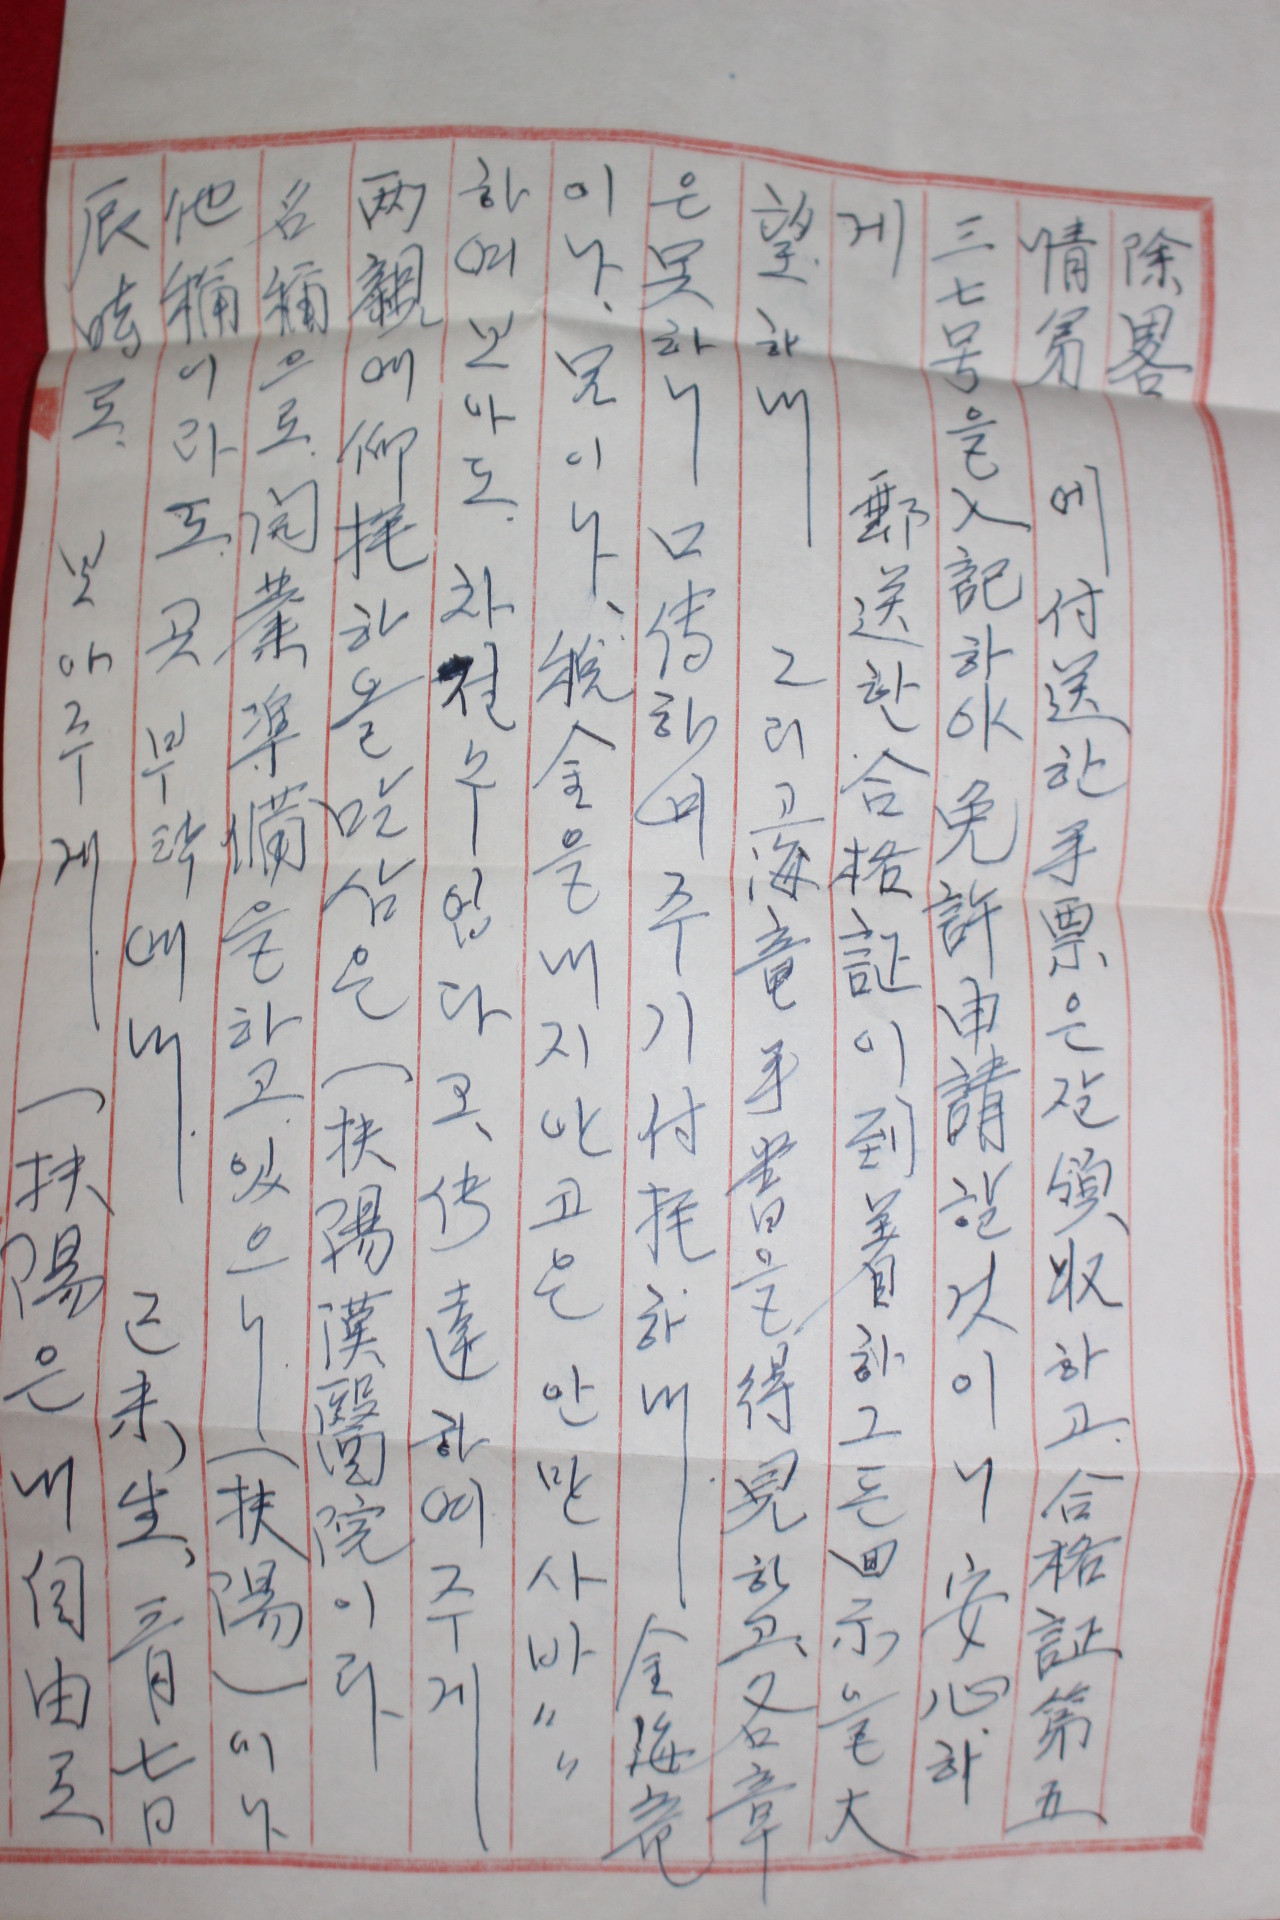 除畧
情第 에 付送한 手票은 잘 領收하고. 合格証 第五
三七号을 入記하야 免許申請할 것이니 安心.하
게 郵送한 合格証이 到着하그든 回示을 大
望.하내 그리고 海竜 手書을 得見하고, 名章
은 못하니 口傳하며 주기 付托하내. 金海竜
이나, 못이나, 稅金을 내지 안고은 안만 사바〃〃
하여 보아도. 차질 수 업다고, 传達하여 주게
两親에 仰托하올 말삼은 (扶陽漢醫院이라
名稱으로. 開業準備을 하고. 있으니. (扶陽)이나
他稱이라도. 곳 부탁대내. 己未, 生, 三月 七日
辰時로. 보아주게. (扶陽은 내 自由로